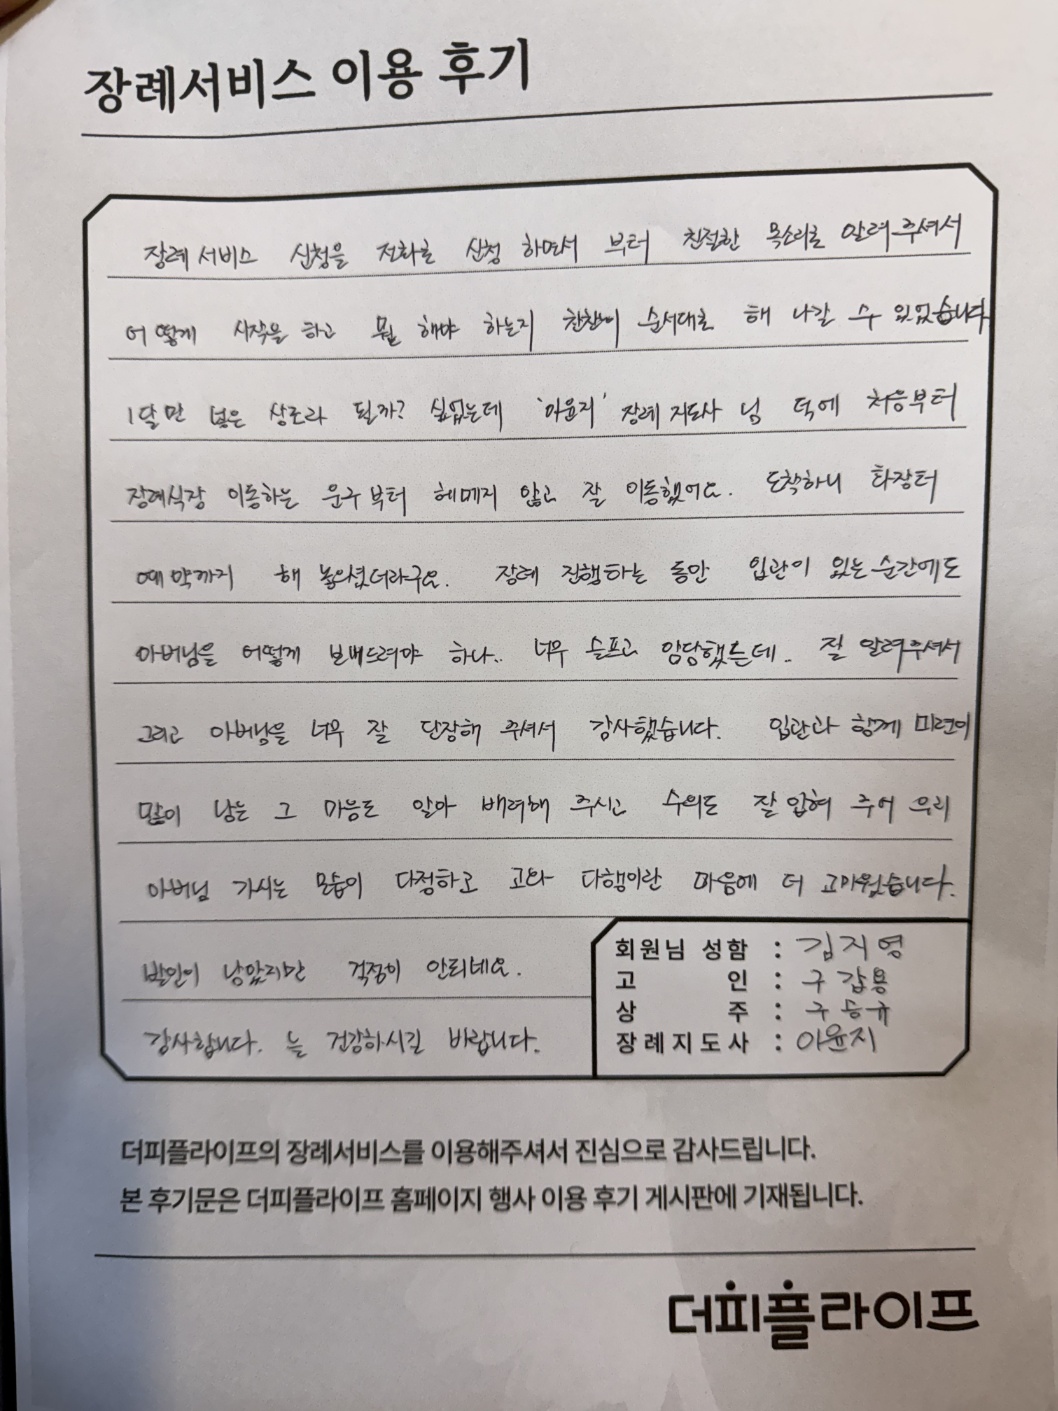 장례서비스 이용 후기
장례서비스 신청을 전화로 신청 하면서 부터 친절한 목소리로 알려주셔서
어떻게 시작을 하고 뭘 해야 하는지 찬찬이 순서대로 해 나갈 수 있었습니다
1달만 넣은 상조라 될까? 싶었는데 '이윤지' 장례지도사 님 덕에 처음부터
장례식장 이동하는 운구부터 헤메지 않고 잘 이동했어요. 도착하니 화장터
예약까지 해 놓으셨더라구요. 장례 진행하는 동안 입관이 있는 순간에도
아버님을 어떻게 보내드려야 하나.. 너무 슬프고 암담했는데.. 잘 알려주셔서
그리고 아버님을 너무 잘 단장해 주셔서 감사했습니다. 입관과 함께 미련이
많이 남는 그 마음도 알아 배려해 주시고 수의도 잘 입혀 주어 우리
아버님 가시는 모습이 다정하고 고와 다행이란 마음에 더 고마웠습니다.
발인이 남았지만 걱정이 안되네요.
감사합니다. 늘 건강하시길 바랍니다.
회원님 성함 : 김지영
고 인 : 구갑용
상 주 : 구승규
장례지도사 : 이윤지
더피플라이프의 장례서비스를 이용해주셔서 진심으로 감사드립니다.
본 후기문은 더피플라이프 홈페이지 행사 이용 후기 게시판에 기재됩니다.
더피플라이프